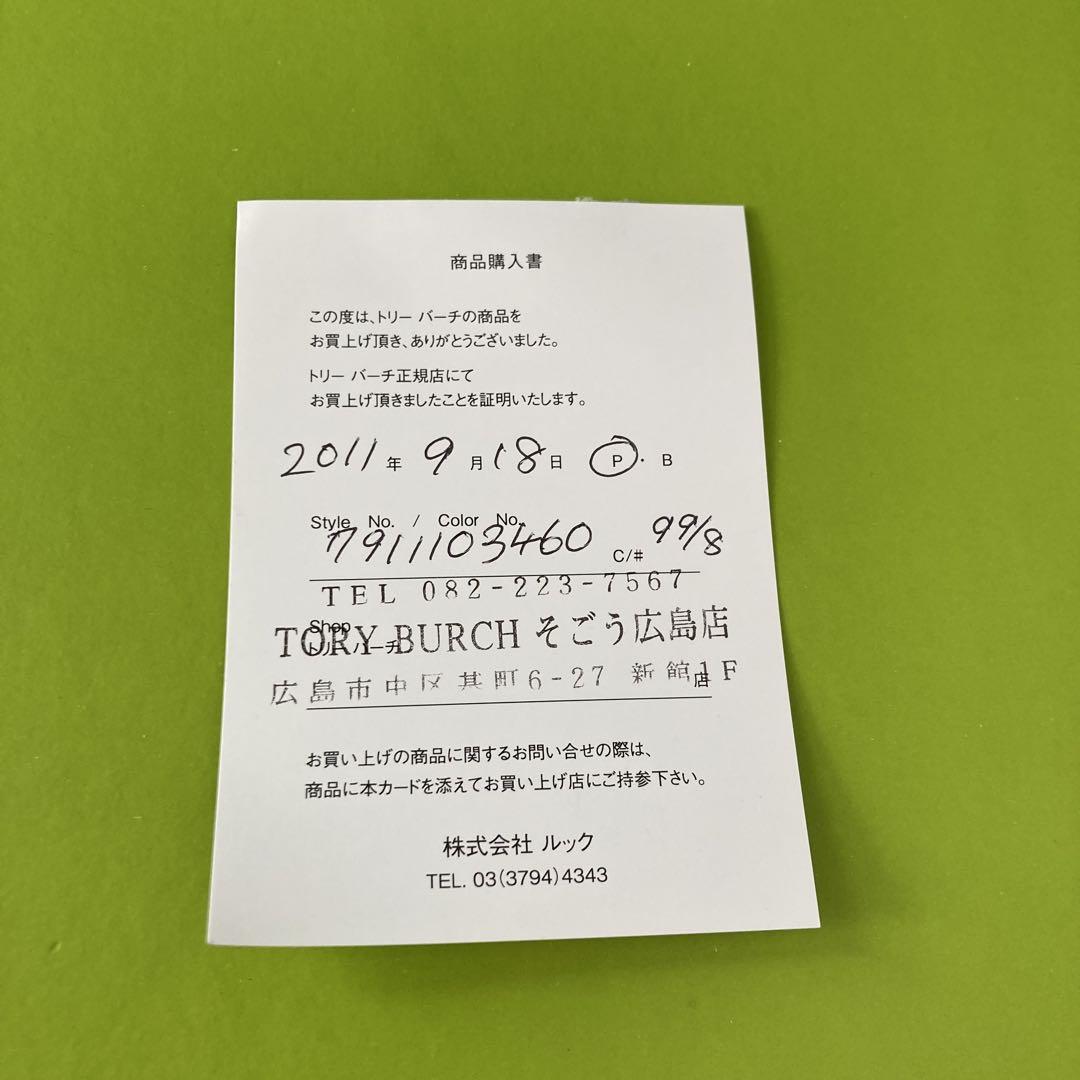 商品購入書
この度は、トリー バーチの商品を
お買上げ頂き、ありがとうございました。
トリー バーチ正規店にて
お買上げ頂きましたことを証明いたします。
2011年 9月18日 P・B
Style No. / Color No.
7911103460 C/# 99/8
TEL 082-223-7567
Shop
TORY BURCH そごう広島店
トリー バーチ
広島市中区基町6-27 新館1F
店
お買い上げの商品に関するお問い合せの際は、
商品に本カードを添えてお買い上げ店にご持参下さい。
株式会社 ルック
TEL. 03(3794)4343